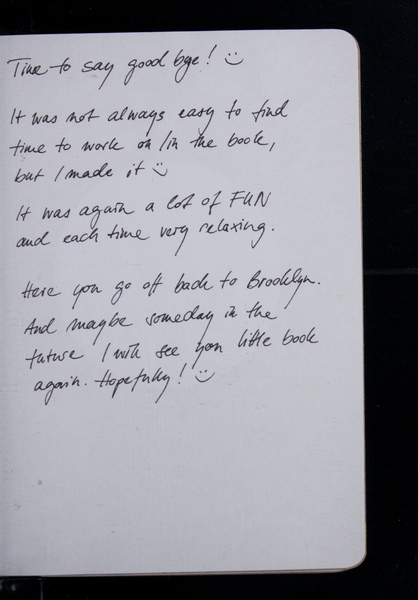 Time to say good bye! :)
It was not always easy to find
time to work on/in the book,
but I made it :)
It was again a lot of FUN
and each time very relaxing.
Here you go off back to Brooklyn.
And maybe someday in the
future I will see you little book
again. Hopefully! :)